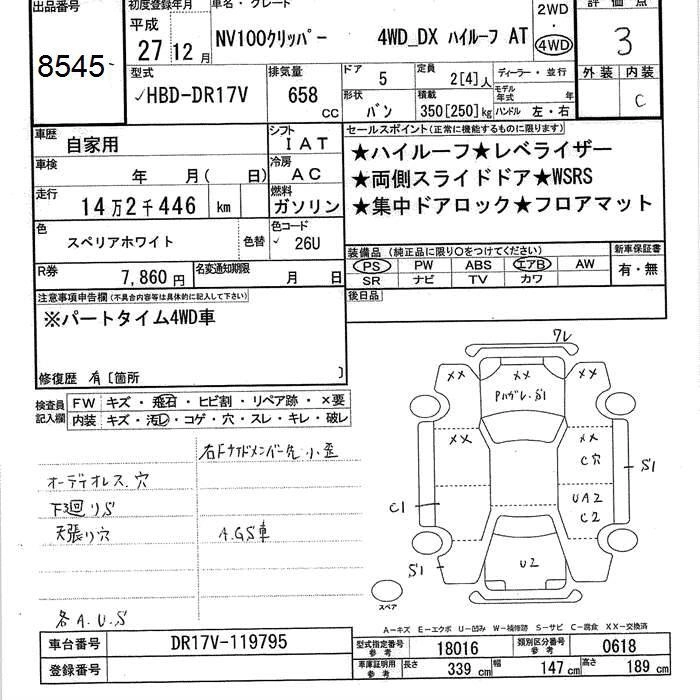 出品番号
8545
初度登録年月
平成
27 12 月
車名・グレード
NV100クリッパー 4WD_DX ハイルーフ AT
2WD
・
4WD
評価点
3
外装 内装
C
型式
✓HBD-DR17V
排気量
658 CC
ドア 5
形状 バン
定員 2[4]人
積載 350[250]kg
ディーラー・並行
モデル年式 年
ハンドル 左・右
車歴 自家用
シフト IAT
車検 年 月( 日)
冷房 AC
走行 14万2千446 km
燃料 ガソリン
色 スペリアホワイト
色替
色コード ✓ 26U
R券 7,860円
名変通知期限 月 日
セールスポイント(正常に機能するものに限ります)
★ハイルーフ★レベライザー
★両側スライドドア★WSRS
★集中ドアロック★フロアマット
装備品(純正品に限り○をつけてください)
新車保証書
PS PW ABS エアB AW
SR ナビ TV カワ
有・無
後日品
注意事項申告欄(不具合内容等は具体的に記入して下さい)
※パートタイム4WD車
修復歴 有〔箇所 〕
検査員記入欄
FW キズ・飛石・ヒビ割・リペア跡・×要
内装 キズ・汚レ・コゲ・穴・スレ・キレ・破レ
右Fナカドメンバー先小歪
オーディオレス.穴
下廻りS
天張り穴
A.GS車
各A.U.S
ワレ
××
××
××
Pハゲレ.S1
××
××
C穴
S1
UA2
C2
C1
S1
U2
スペア
A-キズ E-エクボ U-凹み W-補修跡 S-サビ C-腐食 XX-交換済
車台番号 DR17V-119795
登録番号
型式指定番号 参考 18016
類別区分番号 参考 0618
車庫証明用 参考 長さ 339 cm 幅 147 cm 高さ 189 cm